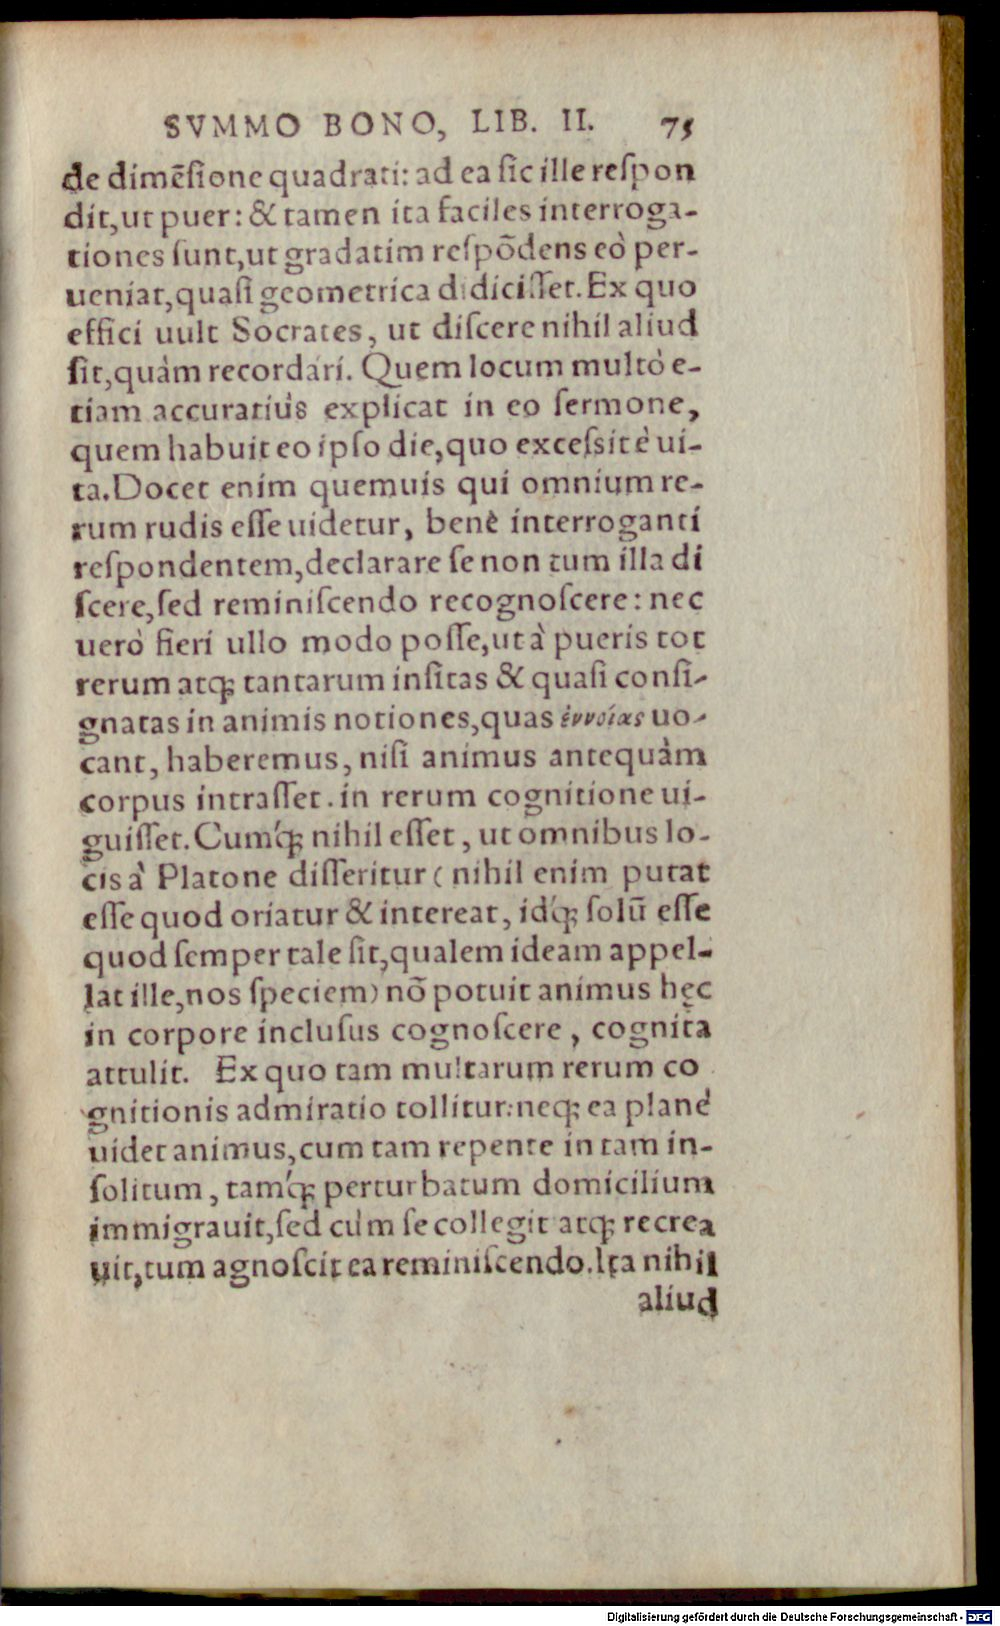 SVMMO BONO, LIB. II. 75
de dimẽſione quadrati: ad ea ſic ille reſpon
dit, ut puer: & tamen ita faciles interroga-
tiones ſunt, ut gradatim reſpõdens eò per-
ueniat, quaſi geometrica didiciſſet. Ex quo
effici uult Socrates, ut diſcere nihil aliud
ſit, quàm recordari. Quem locum multò e-
tiam accuratiùs explicat in eo ſermone,
quem habuit eo ipſo die, quo exceſsit è ui-
ta. Docet enim quemuis qui omnium re-
rum rudis eſſe uidetur, benè interroganti
reſpondentem, declarare ſe non tum illa di
ſcere, ſed reminiſcendo recognoſcere: nec
uerò fieri ullo modo poſſe, ut à pueris tot
rerum atq; tantarum inſitas & quaſi conſi-
gnatas in animis notiones, quas ἐννοίας uo-
cant, haberemus, niſi animus antequàm
corpus intraſſet. in rerum cognitione ui-
guiſſet. Cumq́; nihil eſſet, ut omnibus lo-
cis à Platone diſſeritur (nihil enim putat
eſſe quod oriatur & intereat, idq́; ſolũ eſſe
quod ſemper tale ſit, qualem ideam appel-
lat ille, nos ſpeciem) nõ potuit animus hęc
in corpore incluſus cognoſcere, cognita
attulit. Ex quo tam multarum rerum co
gnitionis admiratio tollitur: neq; ea planè
uidet animus, cum tam repente in tam in-
ſolitum, tamq́; perturbatum domicilium
immigrauit, ſed cùm ſe collegit atq; recrea
uit, tum agnoſcit ea reminiſcendo. Ita nihil
aliud
Digitalisierung gefördert durch die Deutsche Forschungsgemeinschaft - DFG